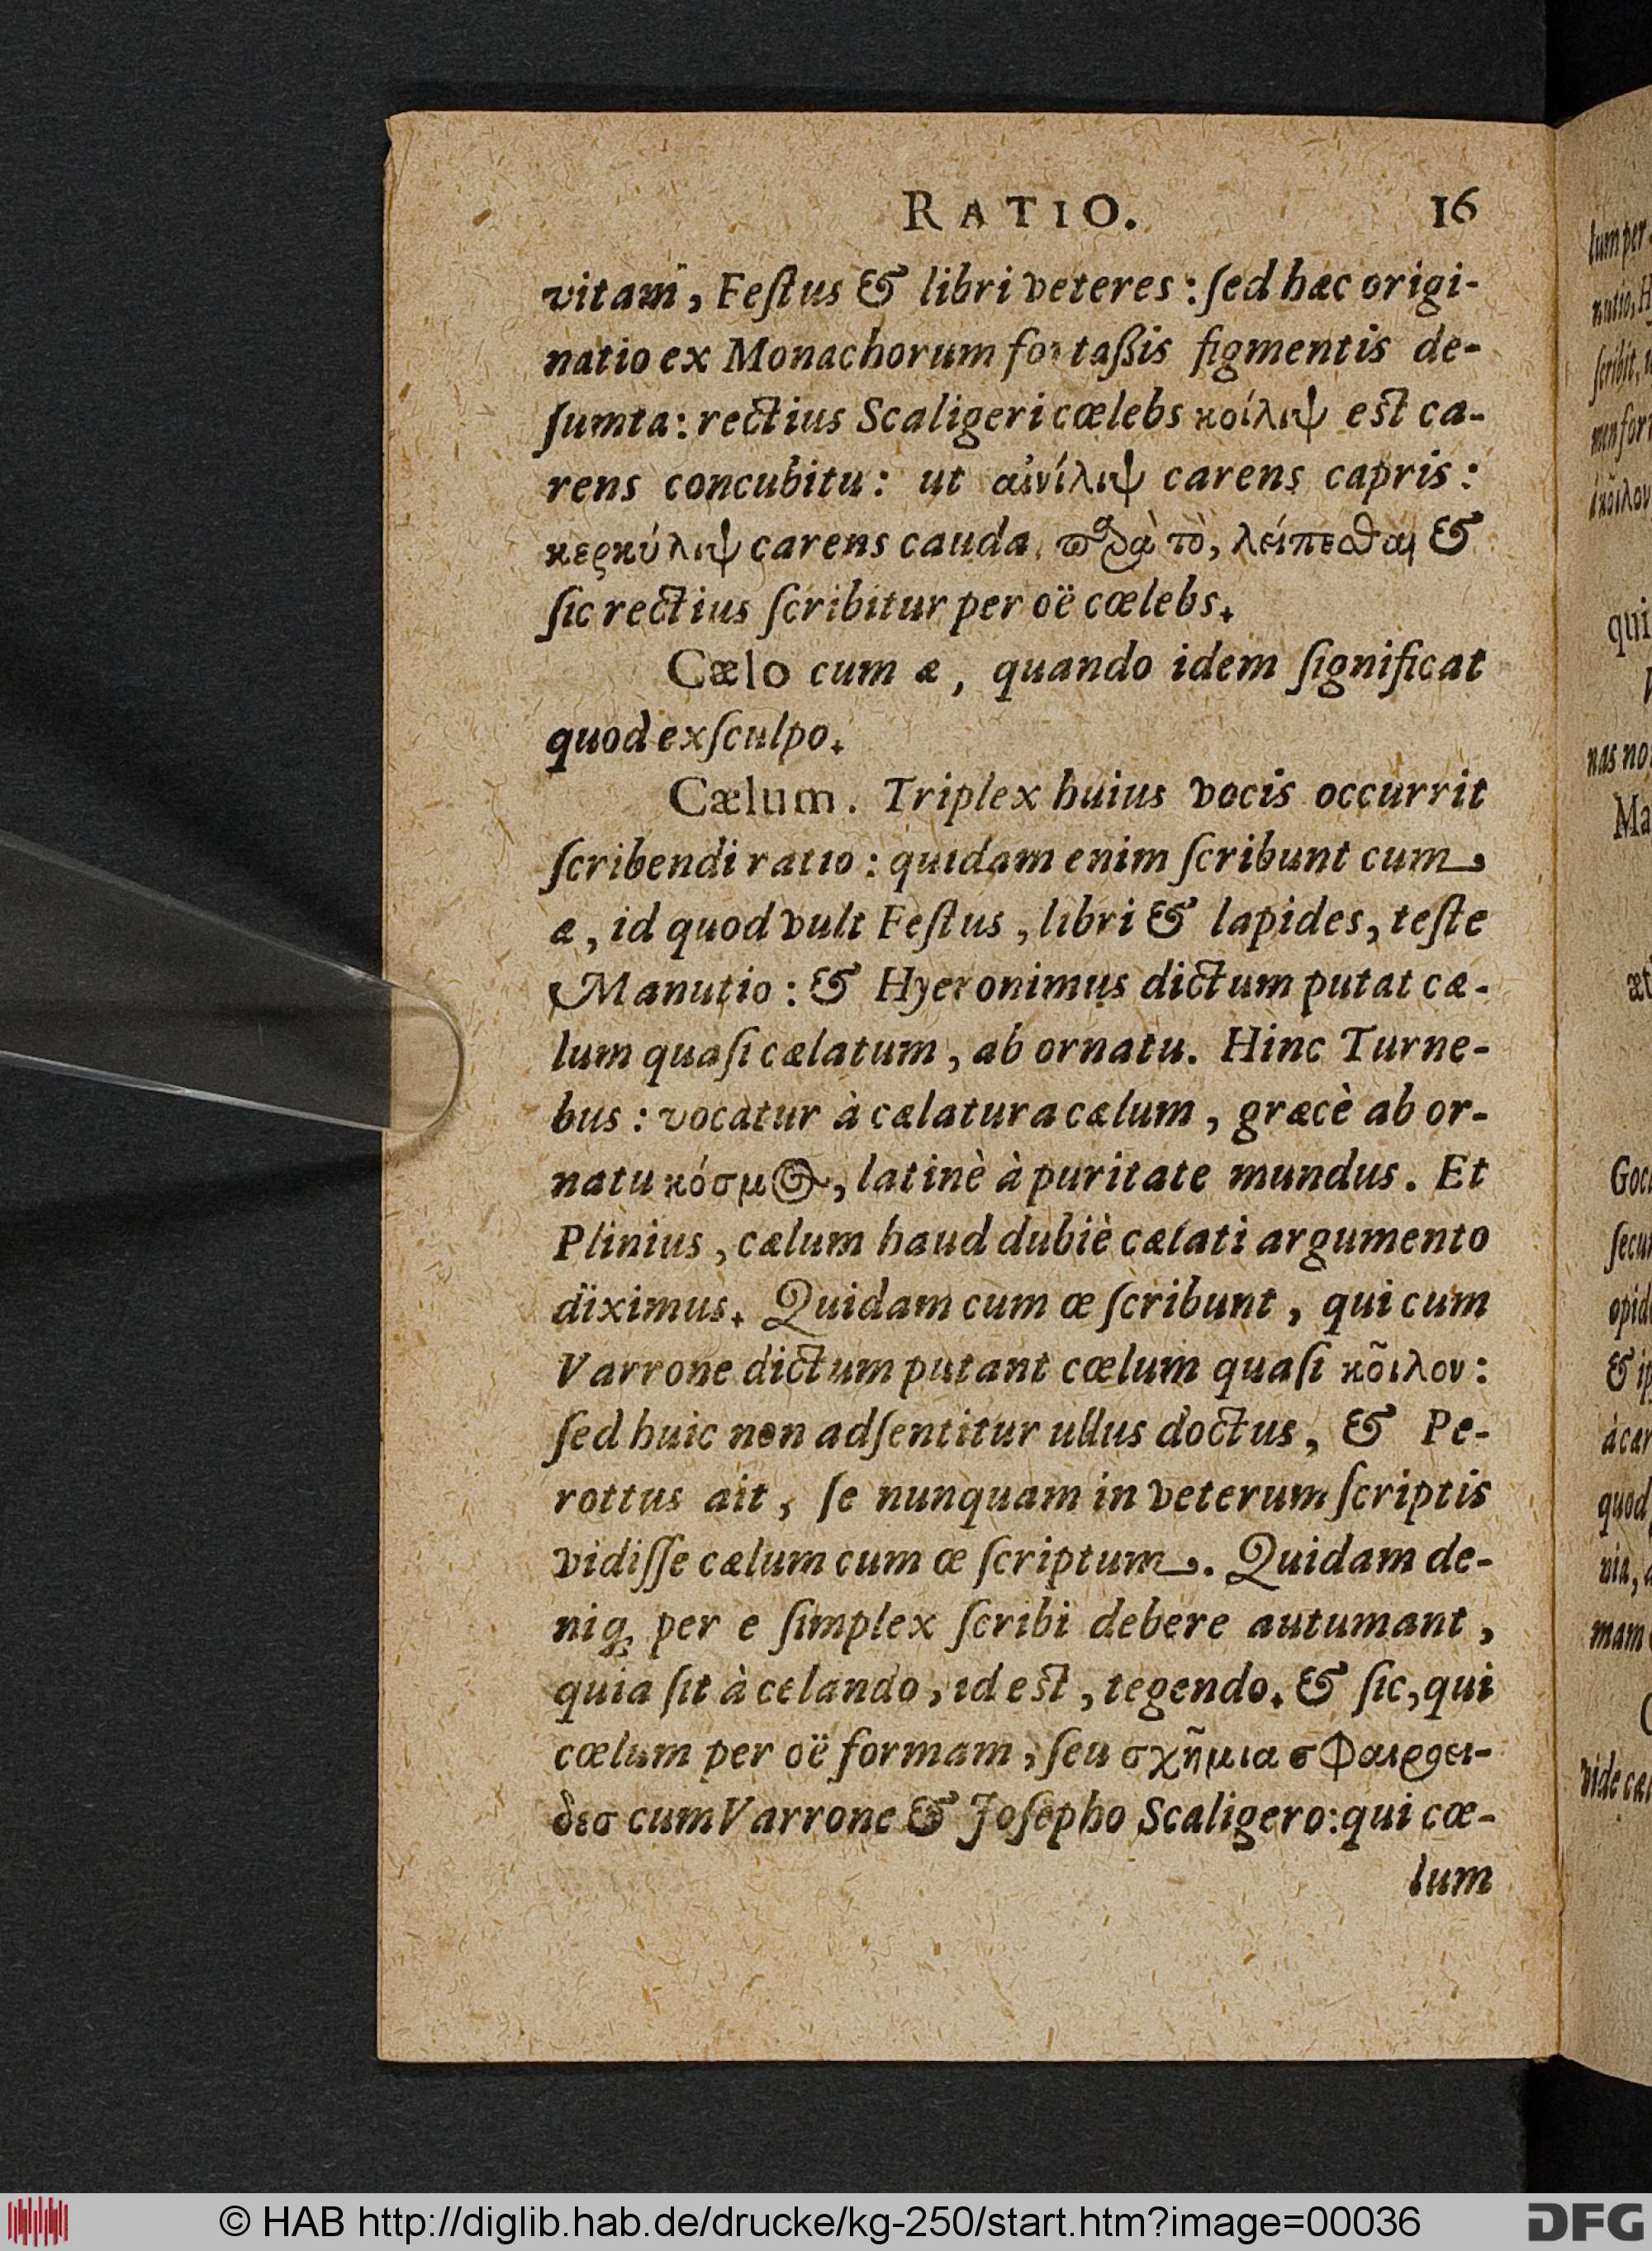 RATIO. 16
vitam, Feſtus & libri veteres: ſed hæc origi-
natio ex Monachorum fortaßis figmentis de-
ſumta: rectius Scaligeri cœlebs κοίλιψ est ca-
rens concubitu: ut αἰνίλιψ carens capris:
κερκύλιψ carens cauda, παρὰ τὸ, λείπεσθαι &
ſic rectius ſcribitur per oë cœlebs.
Cælo cum æ, quando idem ſignificat
quod exſculpo.
Cælum. Triplex huius vocis occurrit
ſcribendi ratio: quidam enim ſcribunt cum
æ, id quod vult Feſtus, libri & lapides, teſte
Manutio: & Hyeronimus dictum putat cæ-
lum quaſi cælatum, ab ornatu. Hinc Turne-
bus: vocatur à cælatura cælum, græcè ab or-
natu κόσμος, latinè à puritate mundus. Et
Plinius, cælum haud dubiè cælati argumento
diximus. Quidam cum œ ſcribunt, qui cum
Varrone dictum putant cœlum quaſi κõιλον:
ſed huic non adſentitur ullus doctus, & Pe-
rottus ait, ſe nunquam in veterum ſcriptis
vidiſſe cælum cum œ ſcriptum. Quidam de-
niq; per e ſimplex ſcribi debere autumant,
quia ſit à celando, id est, tegendo. & ſic, qui
cœlum per oë formam, ſeu σχῆμια σφαιροει-
δεσ cum Varrone & Joſepho Scaligero: qui cœ-
lum
lum per
qui
nas no
Ma
Goc
© HAB http://diglib.hab.de/drucke/kg-250/start.htm?image=00036
DFG